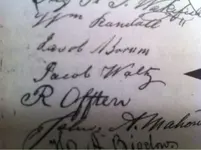 Wm Randall
Jacob Norum
Jacob Waltz
R Offten
John A. Mahon
Bigelow